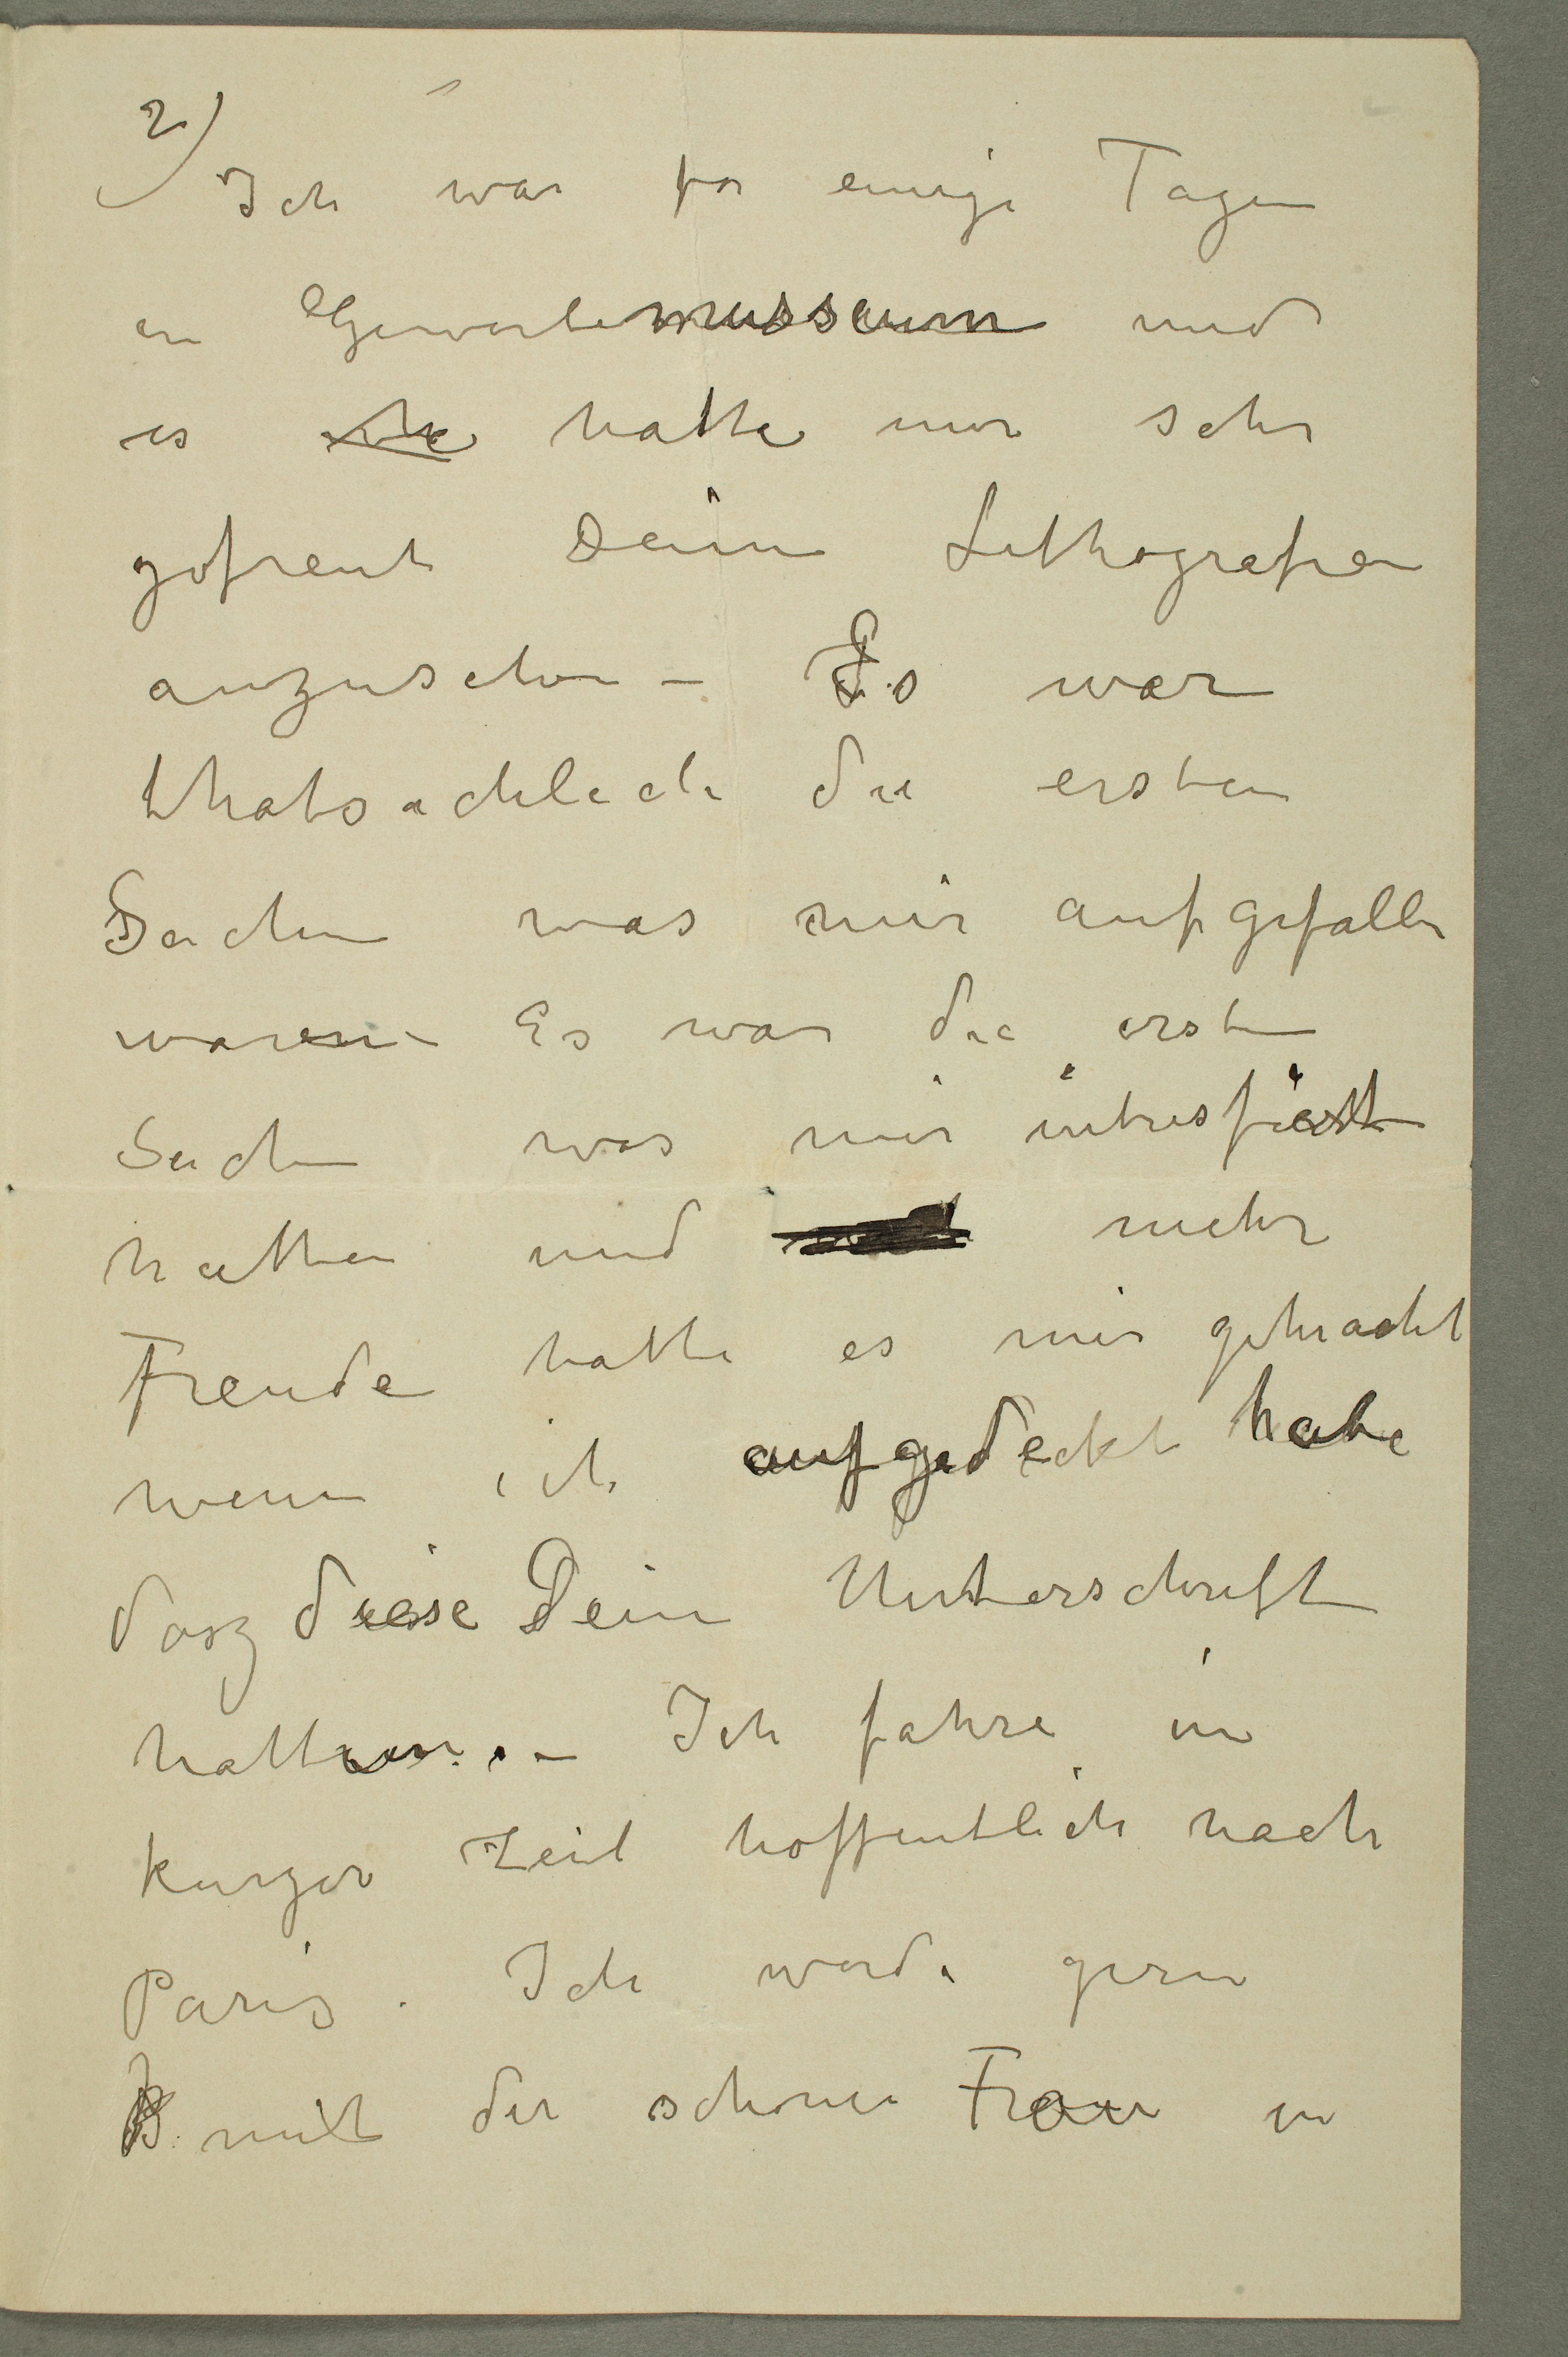 2)
Ich war for einige Tagen
in Gewerbemusseum und
es hatte mir sehr
gefreut Deine Lithografien
anzusehen – Es war
thatsachlich die ersten
Sachen was mir aufgefallen
waren – Es war die ersten
Sachen was mir intresfiert
hatten und mehr
Freude hatte es mir gebracht
wenn ich aufgedeckt habe
dasz diese Dein Unterschrift
hatten. – Ich fahre in
kurzer Zeit hoffentlich nach
Paris. Ich werde gern
mit der schonen Frau in